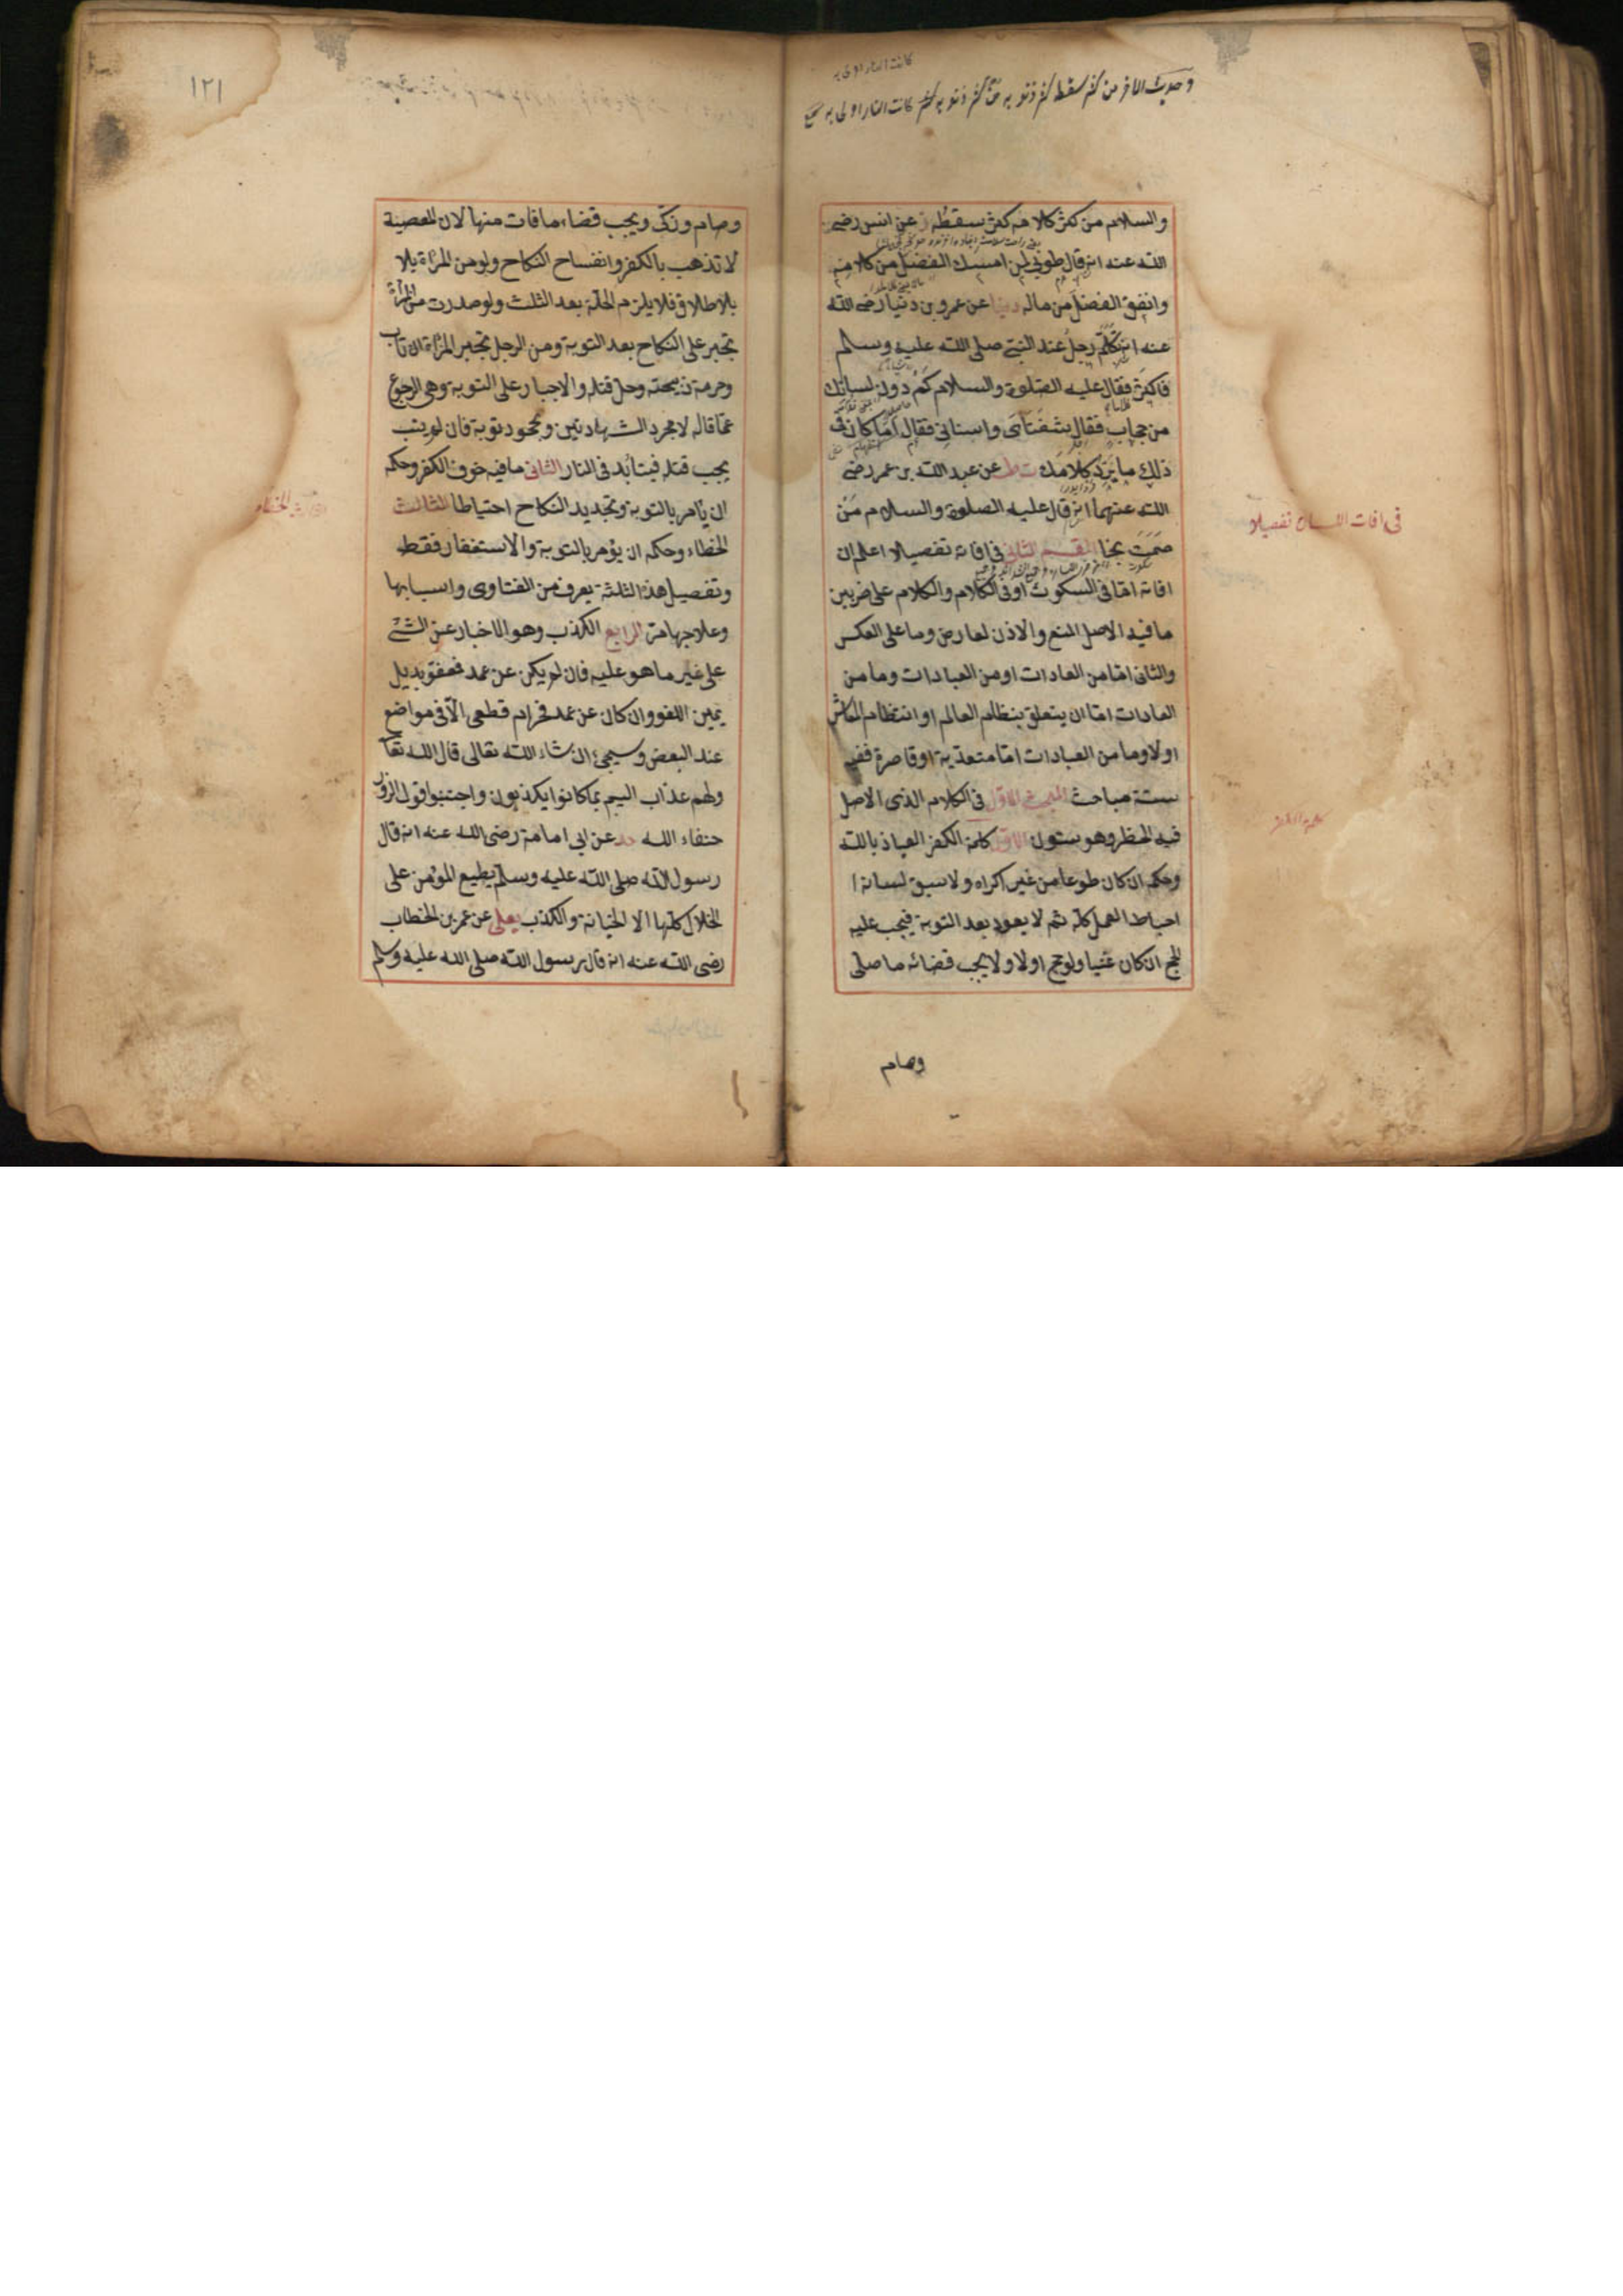 كانت النار اولى به
وحديث الآخر من كثر سقطه كثر ذنوبه من كثر ذنوبه كانت النار اولى به
والسلام من كثر كلامه كثر سقطه ز عن انس رضى
الله عنه انه قال طوبى لمن امسك الفضل من كلامه
وانفق الفضل من ماله دنيا عن عمرو بن دنيا رضى الله
عنه انه تكلم رجل عند النبى صلى الله عليه وسلم
فاكثر فقال عليه الصلوة والسلام كم دون لسانك
من حجاب فقال شفتاى واسنانى فقال اما كان فى
ذلك ما يرد كلامك ت ط عن عبد الله بن عمر رضى
الله عنهما انه قال عليه الصلوة والسلام من
صمت نجا القسم الثانى فى افاته تفصيلا اعلم ان
فى افات اللسان تفصيلا
افاته اما فى السكوت او فى الكلام والكلام على ضربين
ما فيه الاصل المنع والاذن لعارض وما على العكس
والثانى اما من العادات او من العبادات وما من
العادات اما ان يتعلق بنظام العالم او انتظام المعاش
اولا وما من العبادات اما متعدية او قاصرة ففيه
ستة مباحث المبحث الاول فى الكلام الذى الاصل
فيه الحظر وهو ستون الاول كلمة الكفر العياذ بالله
كلمة الكفر
وحكمه ان كان طوعا من غير اكراه ولا سبق لسانه ا
احباط العمل كله ثم لا يعود بعد التوبة فيجب عليه
الحج ان كان غنيا ولو حج اولا ولا يجب قضائه ما صلى
وصام
١٢١
وصام وزكى ويجب قضاء ما فات منها لان المعصية
لا تذهب بالكفر وانفساح النكاح ولو من المرأة بلا
بلا طلاق فلا يلزم الحلة بعد الثلث ولو صدرت من المرأة
تجبر على النكاح بعد التوبة ومن الرجل تجبر المرأة ان تاب
وحرمة ذبيحته وحل قتله والاجبار على التوبة وهى الرجوع
عما قاله لا مجرد الشهادتين وجحود توبة فان لم يتب
يجب قتله فيتأبد فى النار الثانى ما فيه خوف الكفر وحكمه
ان يأمر بالتوبة وتجديد النكاح احتياطا الثالث
الخطاء وحكمه ان يؤمر بالتوبة والاستغفار فقط
وتفصيل هذه الثلثة يعرف من الفتاوى واسبابها
وعلاجها مر الرابع الكذب وهو الاخبار عن الشئ
على غير ما هو عليه فان لم يكن عن عمد فعفو بديل
يمين اللغو وان كان عن عمد فحرام قطعى الا فى مواضع
عند البعض وسيجئ ان شاء الله تعالى قال الله تعا
ولهم عذاب اليم بما كانوا يكذبون واجتنبوا قول الزور
حنفاء الله حد عن ابى امامة رضى الله عنه انه قال
رسول الله صلى الله عليه وسلم يطبع المؤمن على
الخلال كلها الا الخيانة والكذب يعلى عن عمر بن الخطاب
رضى الله عنه انه قال رسول الله صلى الله عليه وسلم